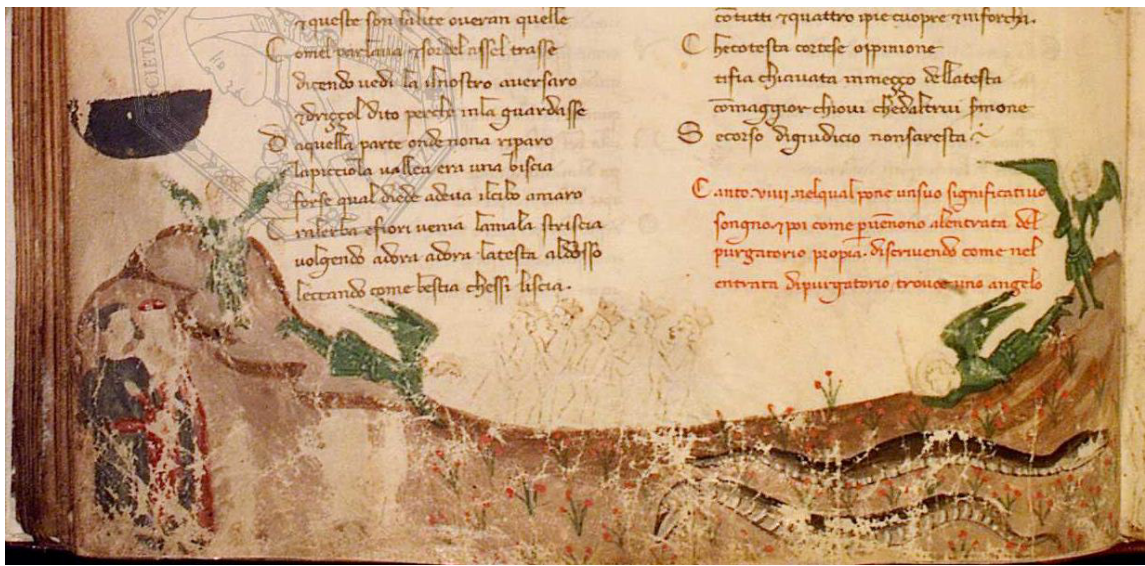 ⁊ queste son salite ove eran quelle
Come i parlava ⁊ sordel asse l trasse
dicendo vedi la il nostro aversaro
⁊ drizzo l dito perche in la guardasse
Da quella parte onde non a riparo
la picciola vallea era una biscia
forse qual diede ad eva il cibo amaro
Tra lerba e fiori venia la mala striscia
volgendo ad ora ad ora la testa al dosso
leccando come bestia che ssi liscia.
cō tutti ⁊ quattro i pie cuopre ⁊ inforchi.
Che cotesta cortese oppinione
ti fia chiavata in mezzo della testa
cō maggior chiovi che d altrui s̄mone
Se corso di giudicio non s aresta
Canto .viiij. nel qual pone un suo significativo
songno. ⁊ poi come p̄venono al entrata del
purgatorio propia. discrivendo come nel
entrata di purgatorio trovoe uno angelo
SOCIETÀ DA